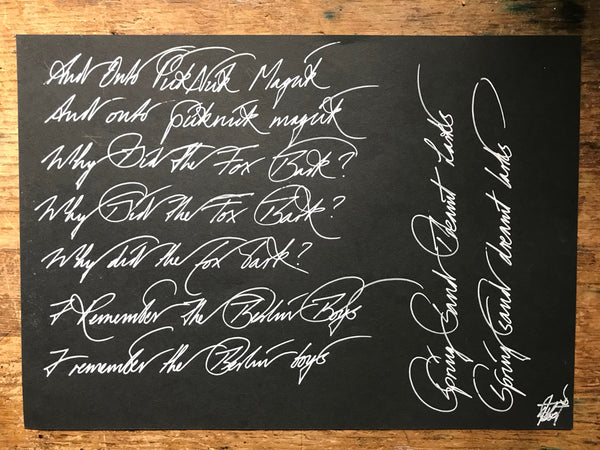 And Onto PickNick Magick
And onto picknick magick
Why Did The Fox Bark?
Why Did The Fox Bark?
Why did the fox bark?
I Remember The Berlin Boys
I remember the Berlin boys
Spring Sand Dreamt Lands
Spring sand dreamt lands